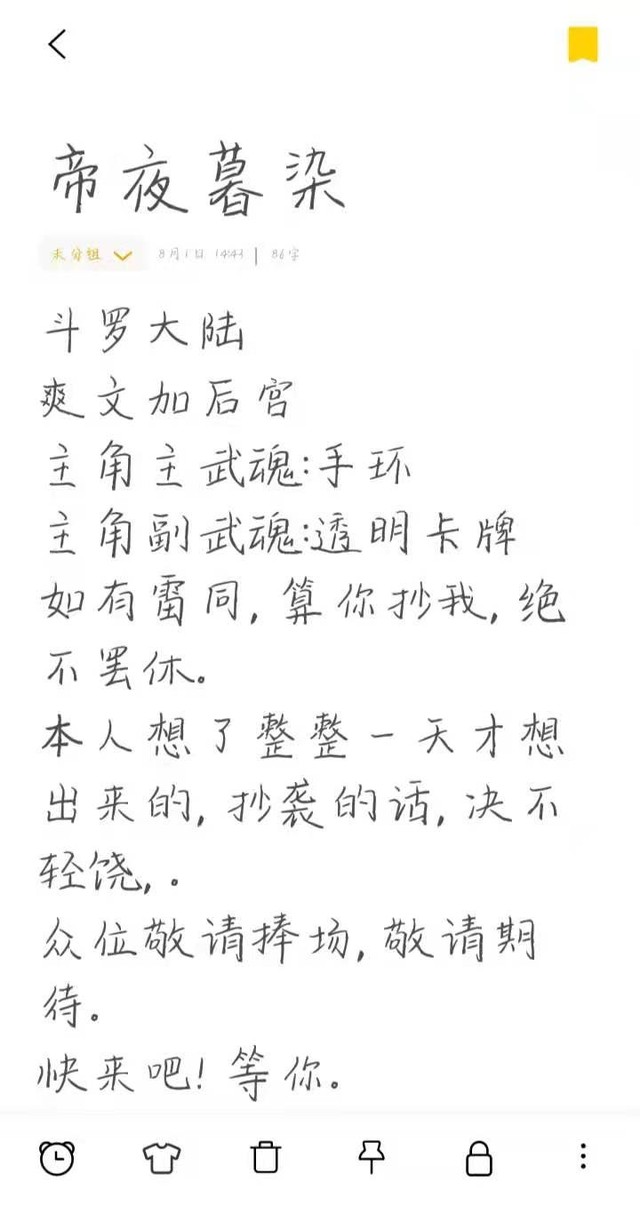 帝夜暮染
未分组 8月1日 14:43 | 86字
斗罗大陆
爽文加后宫
主角主武魂:手环
主角副武魂:透明卡牌
如有雷同,算你抄我,绝
不罢休。
本人想了整整一天才想
出来的,抄袭的话,决不
轻饶,。
众位敬请捧场,敬请期
待。
快来吧!等你。